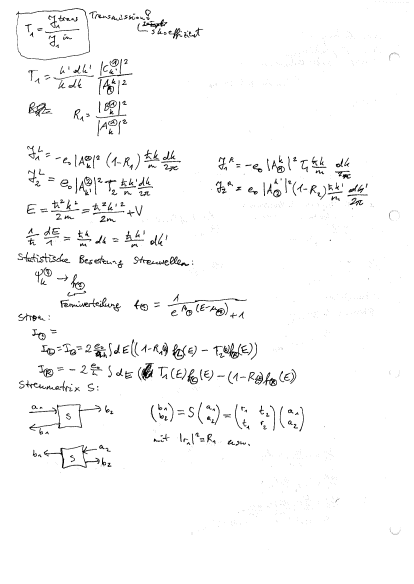 T₁ = J₁^trans / J₁^in   Transmissions-
koeffizient
T₁ = k' dk' / k dk |C_k'^①|² / |A_k^①|²
R₁ = |B_k^①|² / |A_k^①|²
J₁^L = -e₀ |A_k^①|² (1-R₁) ħk/m dk/2π   J₁^R = -e₀ |A_k^①|² T₁ ħk/m dk/2π
J₂^L = e₀ |A_k'^②|² T₂ ħk'/m dk'/2π   J₂^R = e₀ |A_k'^②|² (1-R₂) ħk'/m dk'/2π
E = ħ²k²/2m = ħ²k'²/2m + V
1/ħ dE/1 = ħk/m dk = ħk'/m dk'
Statistische Besetzung Streuwellen:
φ_k^① → f_①
Fermiverteilung f_① = 1 / e^{β_①(E-μ_①)}+1
Strom:
I_① =
I_① = I_② = 2 e₀/h ∫ dE ((1-R₁) f_①(E) - T₂ f_②(E))
I_② = -2 e₀/h ∫ dE (T₁(E) f_①(E) - (1-R_②) f_②(E))
Streumatrix S:
a₁ → S → b₂   (b₁ b₂) = S (a₁ a₂) = (r₁ t₂ t₁ r₂) (a₁ a₂)
b₁
mit |r₁|² = R₁ usw.
b₁ ← S ← a₂
b₂